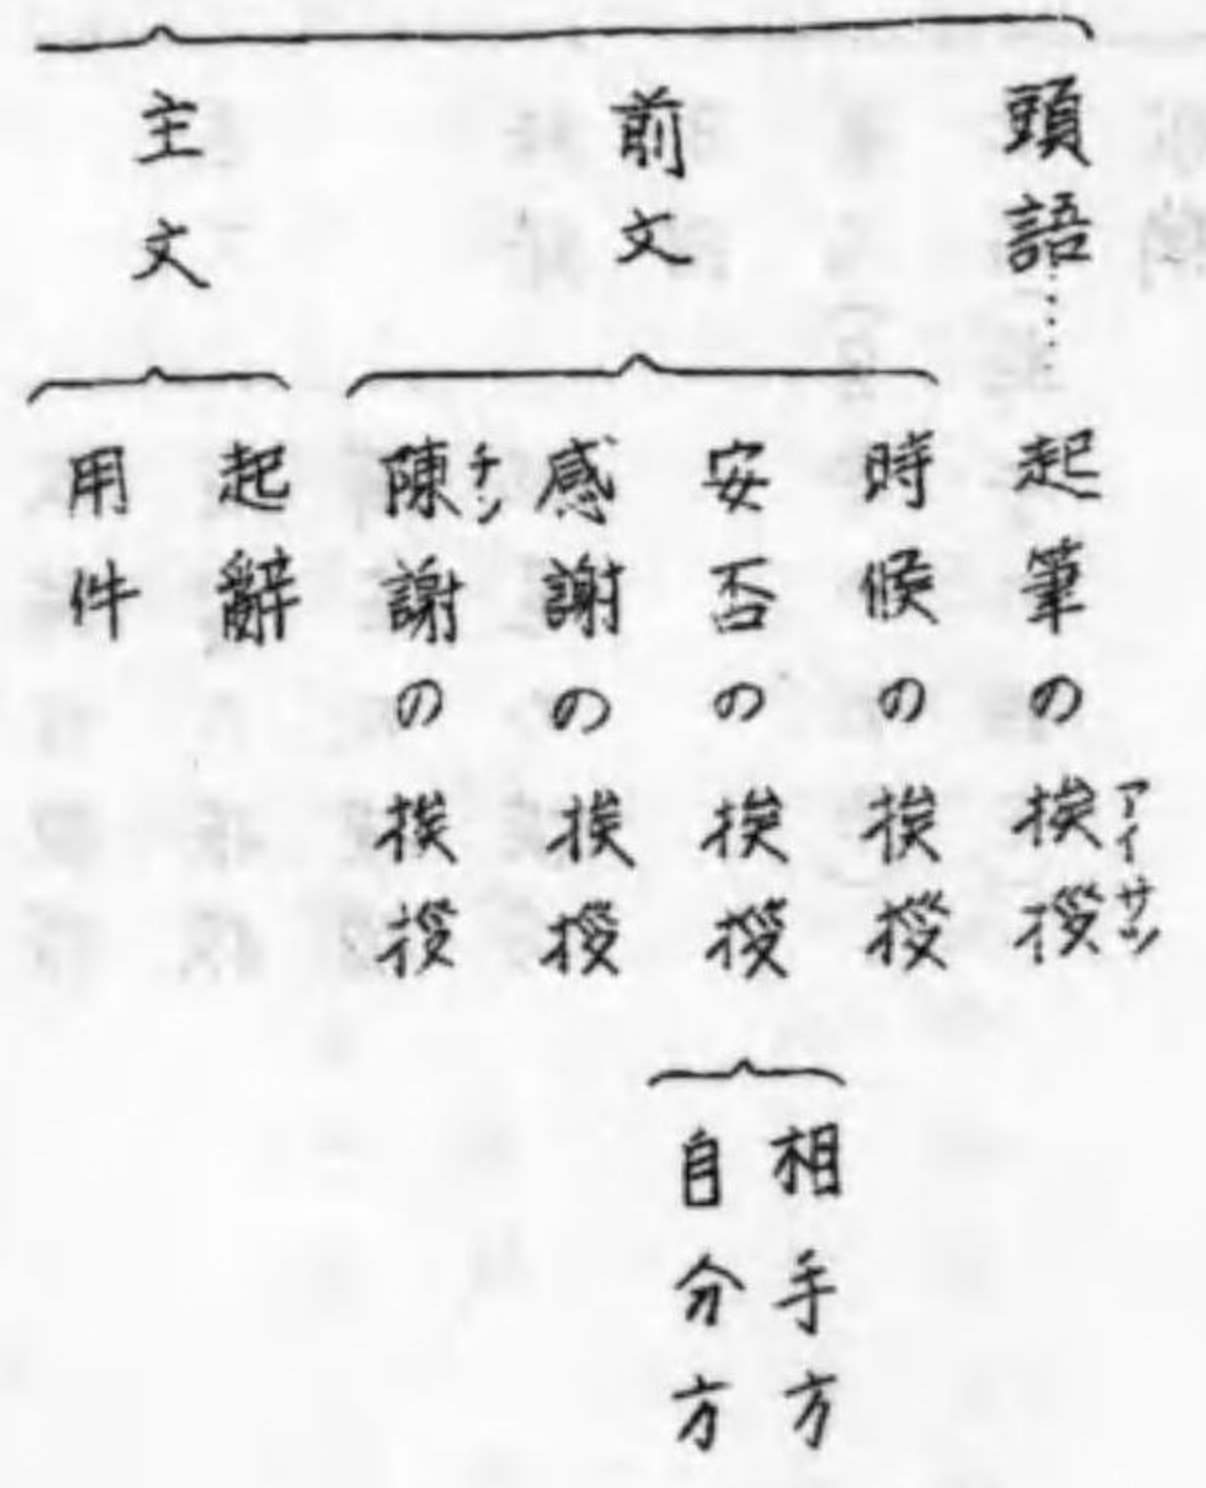 頭語……起筆の挨拶
アイサツ
前文
時候の挨拶
安否の挨拶
相手方
自分方
感謝の挨拶
陳謝の挨拶
チン
主文
起辭
用件